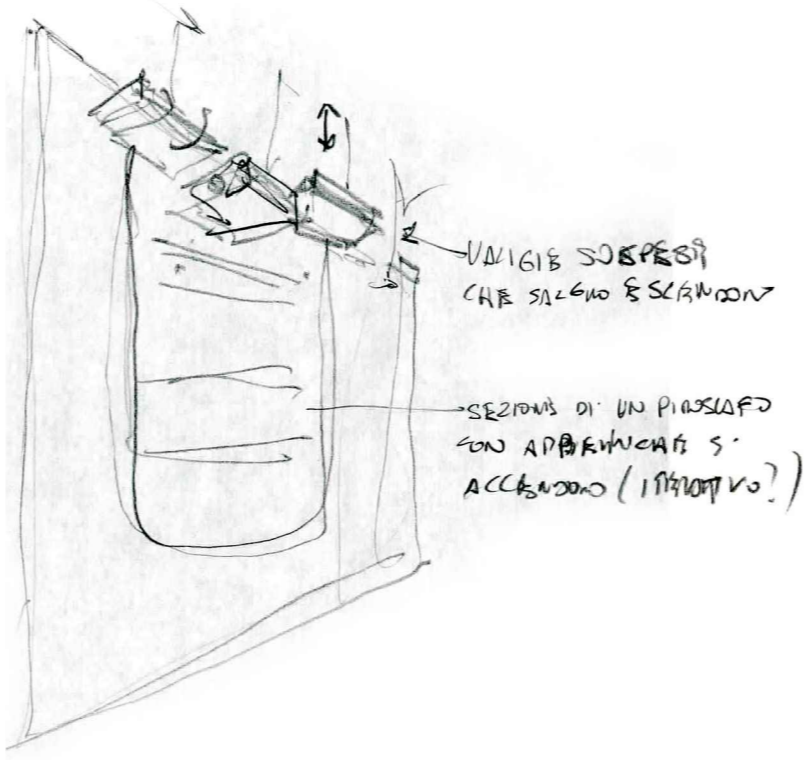 VALIGIE SOSPESE
CHE SALGONO E SCENDONO
SEZIONE DI UN PIROSCAFO
CON APP CHE S.
ACCENDONO (ITERATIVO?)